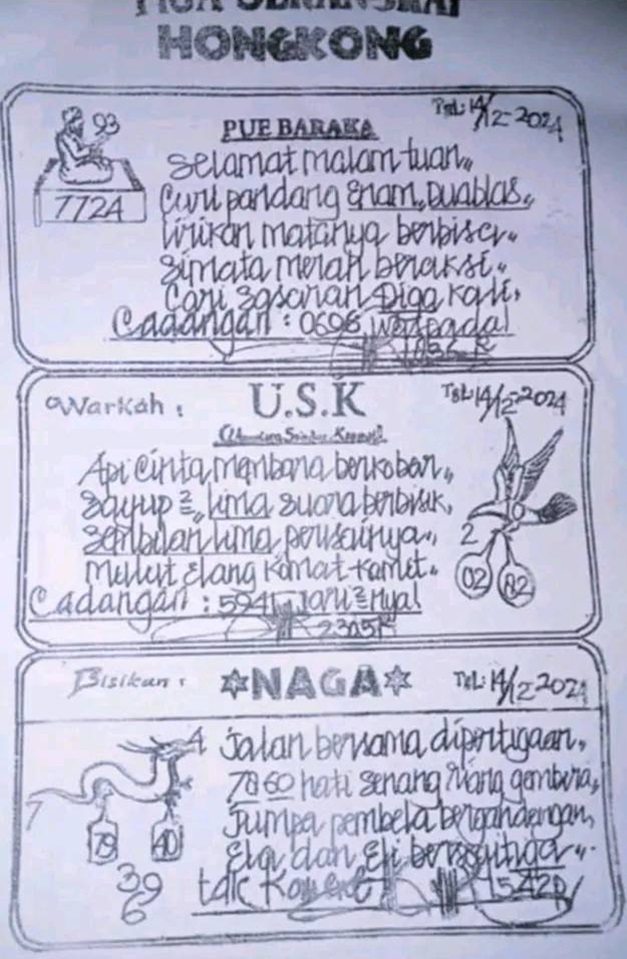 HONGKONG
93
7724
PUE BARAKA
Tgl: 14/12-2024
Selamat malam tuan,,
Curi pandang Enam,,Duablas,,
lirikan matanya berbisa,,
Simata merah beraksi,,
Cari sasaran Diga kali,
Cadangan : 0696
Warkah :
U.S.K
Tgl: 14/12-2024
Api Cinta membara berkobar,,
Sayup ²=,, lima suara berbisik,
Sembilan lima perisainya,,
Mulut Elang Komat-Kamet,
Cadangan : 5941 Jari ²= nya!
2305
2
02 82
Bisikan :
NAGA
Tgl: 14/12-2024
4
7
79 40
39
6
Jalan bersama dipertigaan,
7860 hati senang riang gembira,
Jumpa pembela bergandengan,
Ela dan Eli
1542